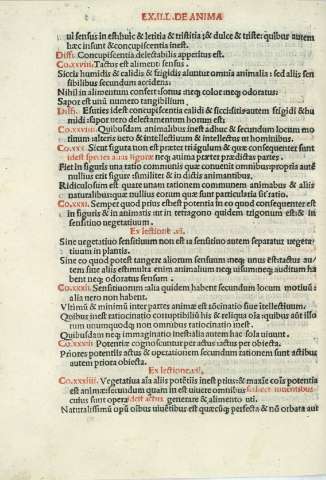 EX.III. DE ANIMA
ul sensus in est hui⁹ & letitia & tristitia & dulce & triste: quibus autem
hæc insunt & concupiscentia inest.
Diff. Concupiscentia delectabilis appetitus est.
Co.xxviii. Tactus est alimenti sensus.
Siccis humidis & calidis & frigidis aluntur omnia animalia: sed aliis sen
sibilibus secundum accidens:
Nihil in alimentum confert sonus neq; color neq; odoratus:
Sapor est unū numero tangibilium
Esuries idest concupiscentia calidi & sicci: sitis autem frigidi & hu
midi: sapor uero delectamentum horum est:
Co.xxviiii. Quibusdam animalibus inest adhuc & secundum locum mo
tiuum: aliis uero & intellectiuum & intellectus ut hominibus.
Co.xxx. Sicut figura non est præter triāgulum & quæ consequenter sunt
idest species aliæ figuræ neq; anima præter prædictas partes.
Fiet in figuris una ratio communis quæ conuenit omnibus: propria autē
nullius erit figuræ: similiter & in dictis animantibus.
Ridiculosum est quærere unam rationem communem in animabus & aliis
naturalibus: quæ nullius eorum quæ sunt particularis sit ratio.
Co.xxxi. Semper quod prius est: est potentia in eo quod consequenter est
in figuris & in animatis ut in tetragono quidem trigonum est: & in
sensitiuo uegetatiuum.
Ex lectione .vi.
Sine uegetatiuo sensitiuum non est: a sensitiuo autem separatur uegeta
tiuum in plantis.
Sine eo quod potest tangere aliorum sensuum neq; unus est: tactus au
tem sine aliis est: multa enim animalium neq; uisum: neq; auditum ha
bent neq; odoratus sensum.
Co.xxxii. Sensitiuorum alia quidem habent secundum locum motiuū:
alia uero non habent.
Vltimū & minimū inter partes animæ est rōcinatio siue ītellectium.
Quibus inest ratiocinatio corruptibiliū his & reliqua oīa: quibus aūt illo
rum unumquodq; non omnibus ratiocinatio inest.
Quibusdam neq; imaginatio inest: alia autem hac sola uiuunt.
Co.xxxiii Potentiæ cognoscuntur per actus: actus per obiecta.
Priores potentiis actus & operationes secundum rationem sunt: actibus
autem priora obiecta.
Ex lectione .vii.
Co.xxxiiii. Vegetatiua aīa aliis potētiis inest prius: & maxīe cōis potentia
est animæ: secundum quam in est uiuere omnibus
cuius sunt opera idest actus generare & alimento uti.
Naturalissimū opū oībus uiuētibus est quæcūq; perfecta & nō orbata aut